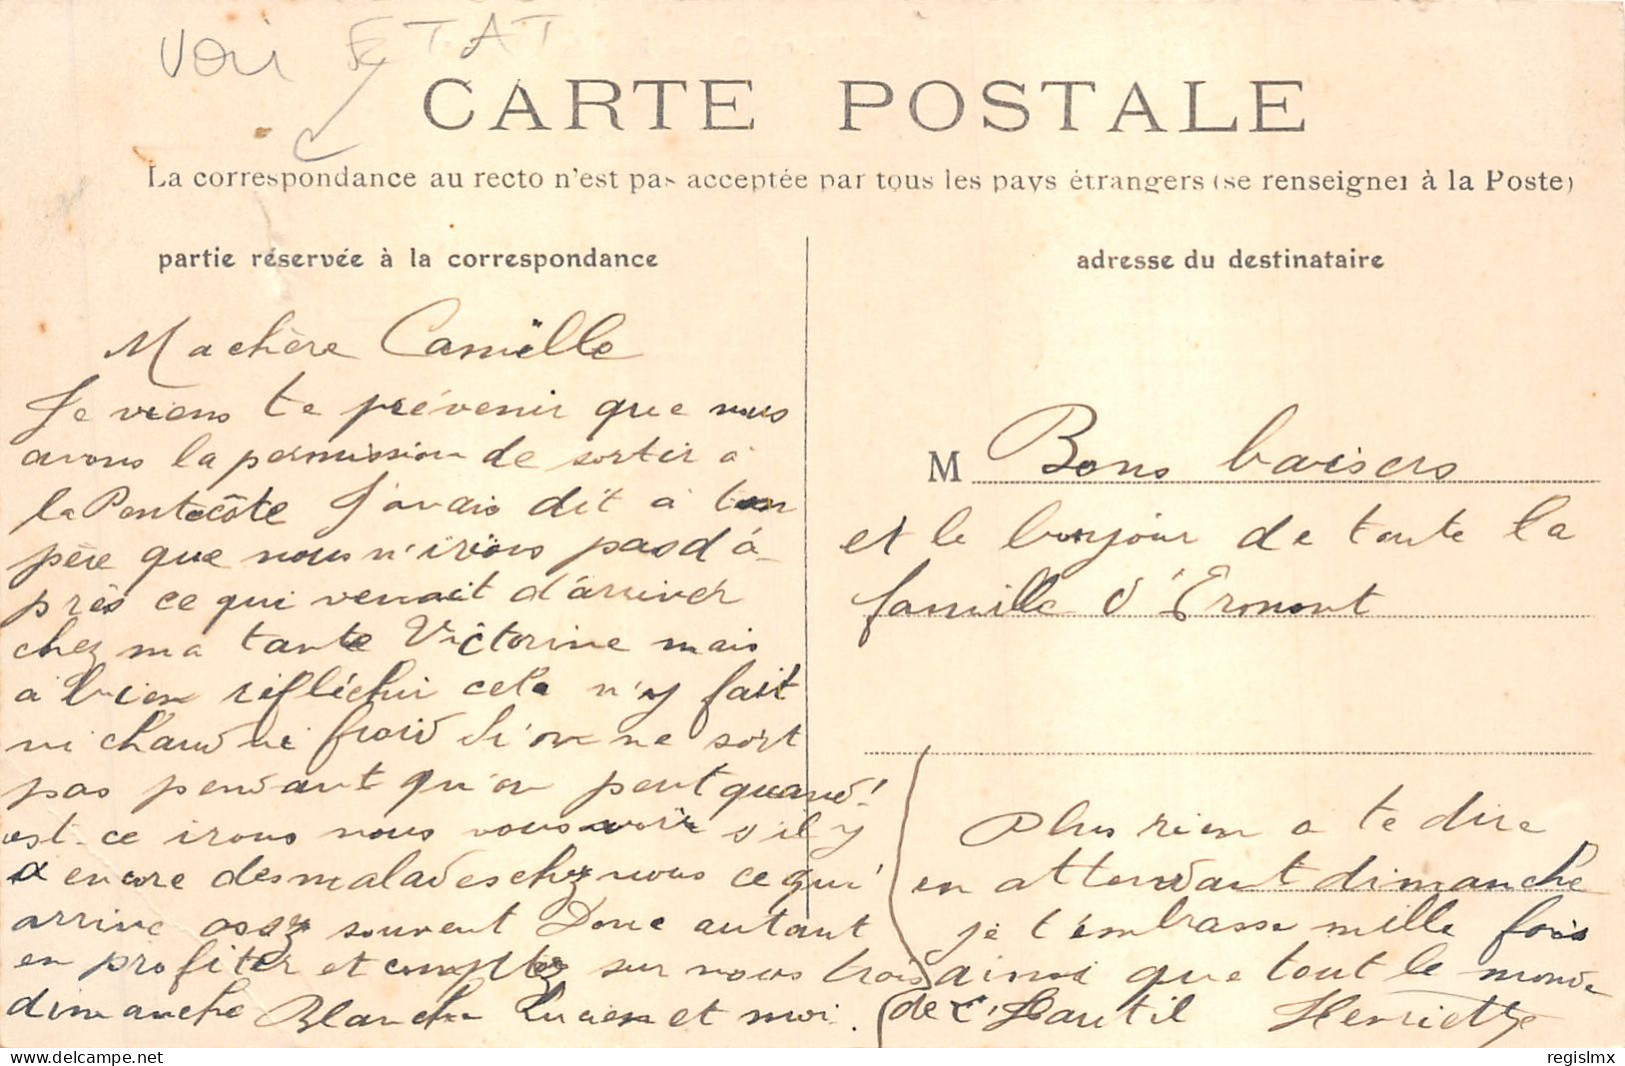 voir ETAT
CARTE POSTALE
La correspondance au recto n'est pas acceptée par tous les pays étrangers (se renseigner à la Poste)
partie réservée à la correspondance
Ma chère Camille
Je viens te prévenir que nous
avons la permission de sortir a
la Pentecôte J'avais dit a ton
père que nous n'irions pas d'a-
près ce qui venait d'arriver
chez ma tante Victorine mais
a bien réfléchir cela n'y fait
ni chaud ni froid si on ne sort
pas pendant qu'on peut quand
est-ce irons nous vous voir s'il y
a encore des malades chez nous ce qui
arrive assez souvent Donc autant
en profiter et comptez sur nous trois
dimanche Blanche Lucien et moi.
adresse du destinataire
M Bons baisers
et le bonjour de toute la
famille d'Ermont
Plus rien a te dire
en attendant dimanche
je t'embrasse mille fois
ainsi que tout le monde
de l'Hautil Henriette
regislmx
www.delcampe.net